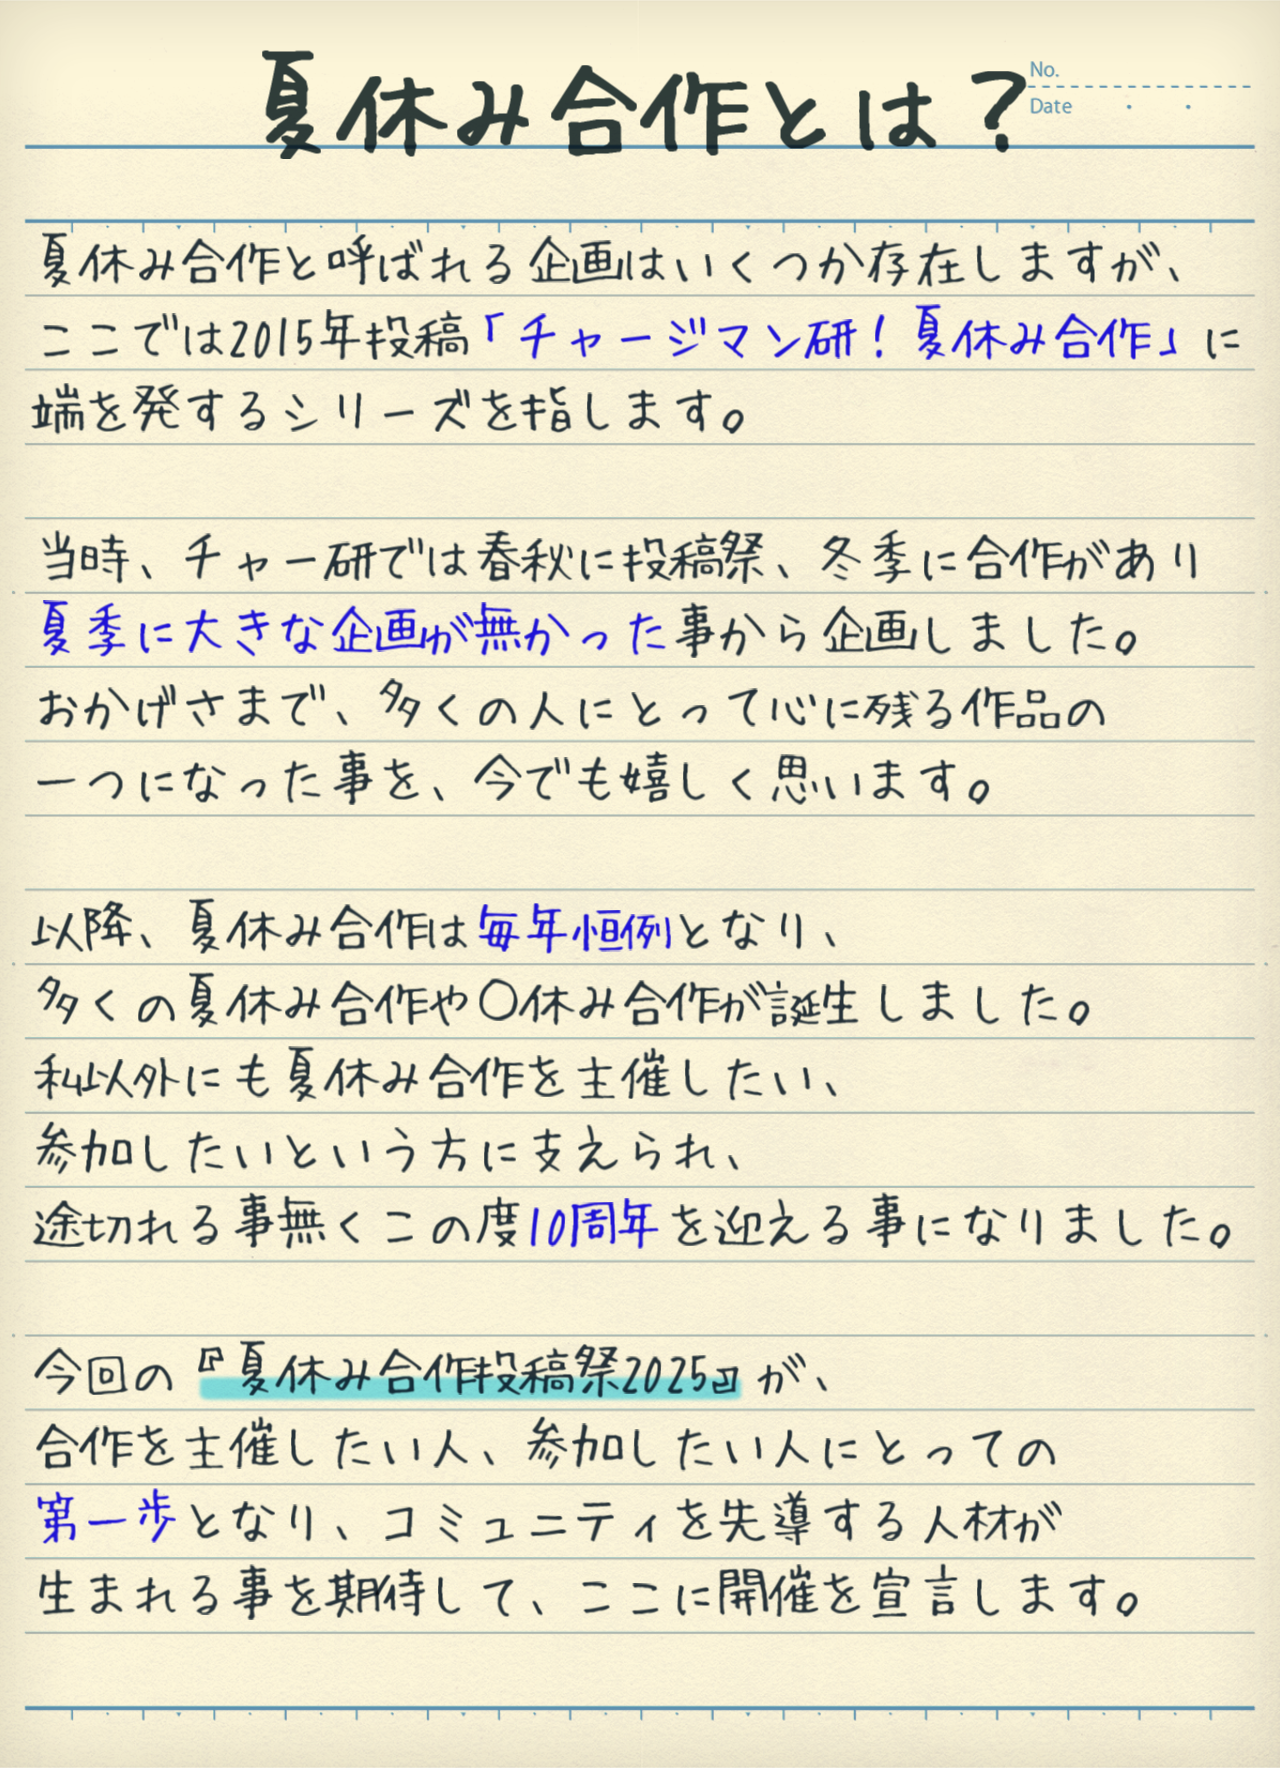 夏休み合作とは？
No.
Date
夏休み合作と呼ばれる企画はいくつか存在しますが、
ここでは2015年投稿「チャージマン研！夏休み合作」に
端を発するシリーズを指します。
当時、チャー研では春秋に投稿祭、冬季に合作があり
夏季に大きな企画が無かった事から企画しました。
おかげさまで、多くの人にとって心に残る作品の
一つになった事を、今でも嬉しく思います。
以降、夏休み合作は毎年恒例となり、
多くの夏休み合作や〇休み合作が誕生しました。
私以外にも夏休み合作を主催したい、
参加したいという方に支えられ、
途切れる事無くこの度10周年を迎える事になりました。
今回の『夏休み合作投稿祭2025』が、
合作を主催したい人、参加したい人にとっての
第一歩となり、コミュニティを先導する人材が
生まれる事を期待して、ここに開催を宣言します。